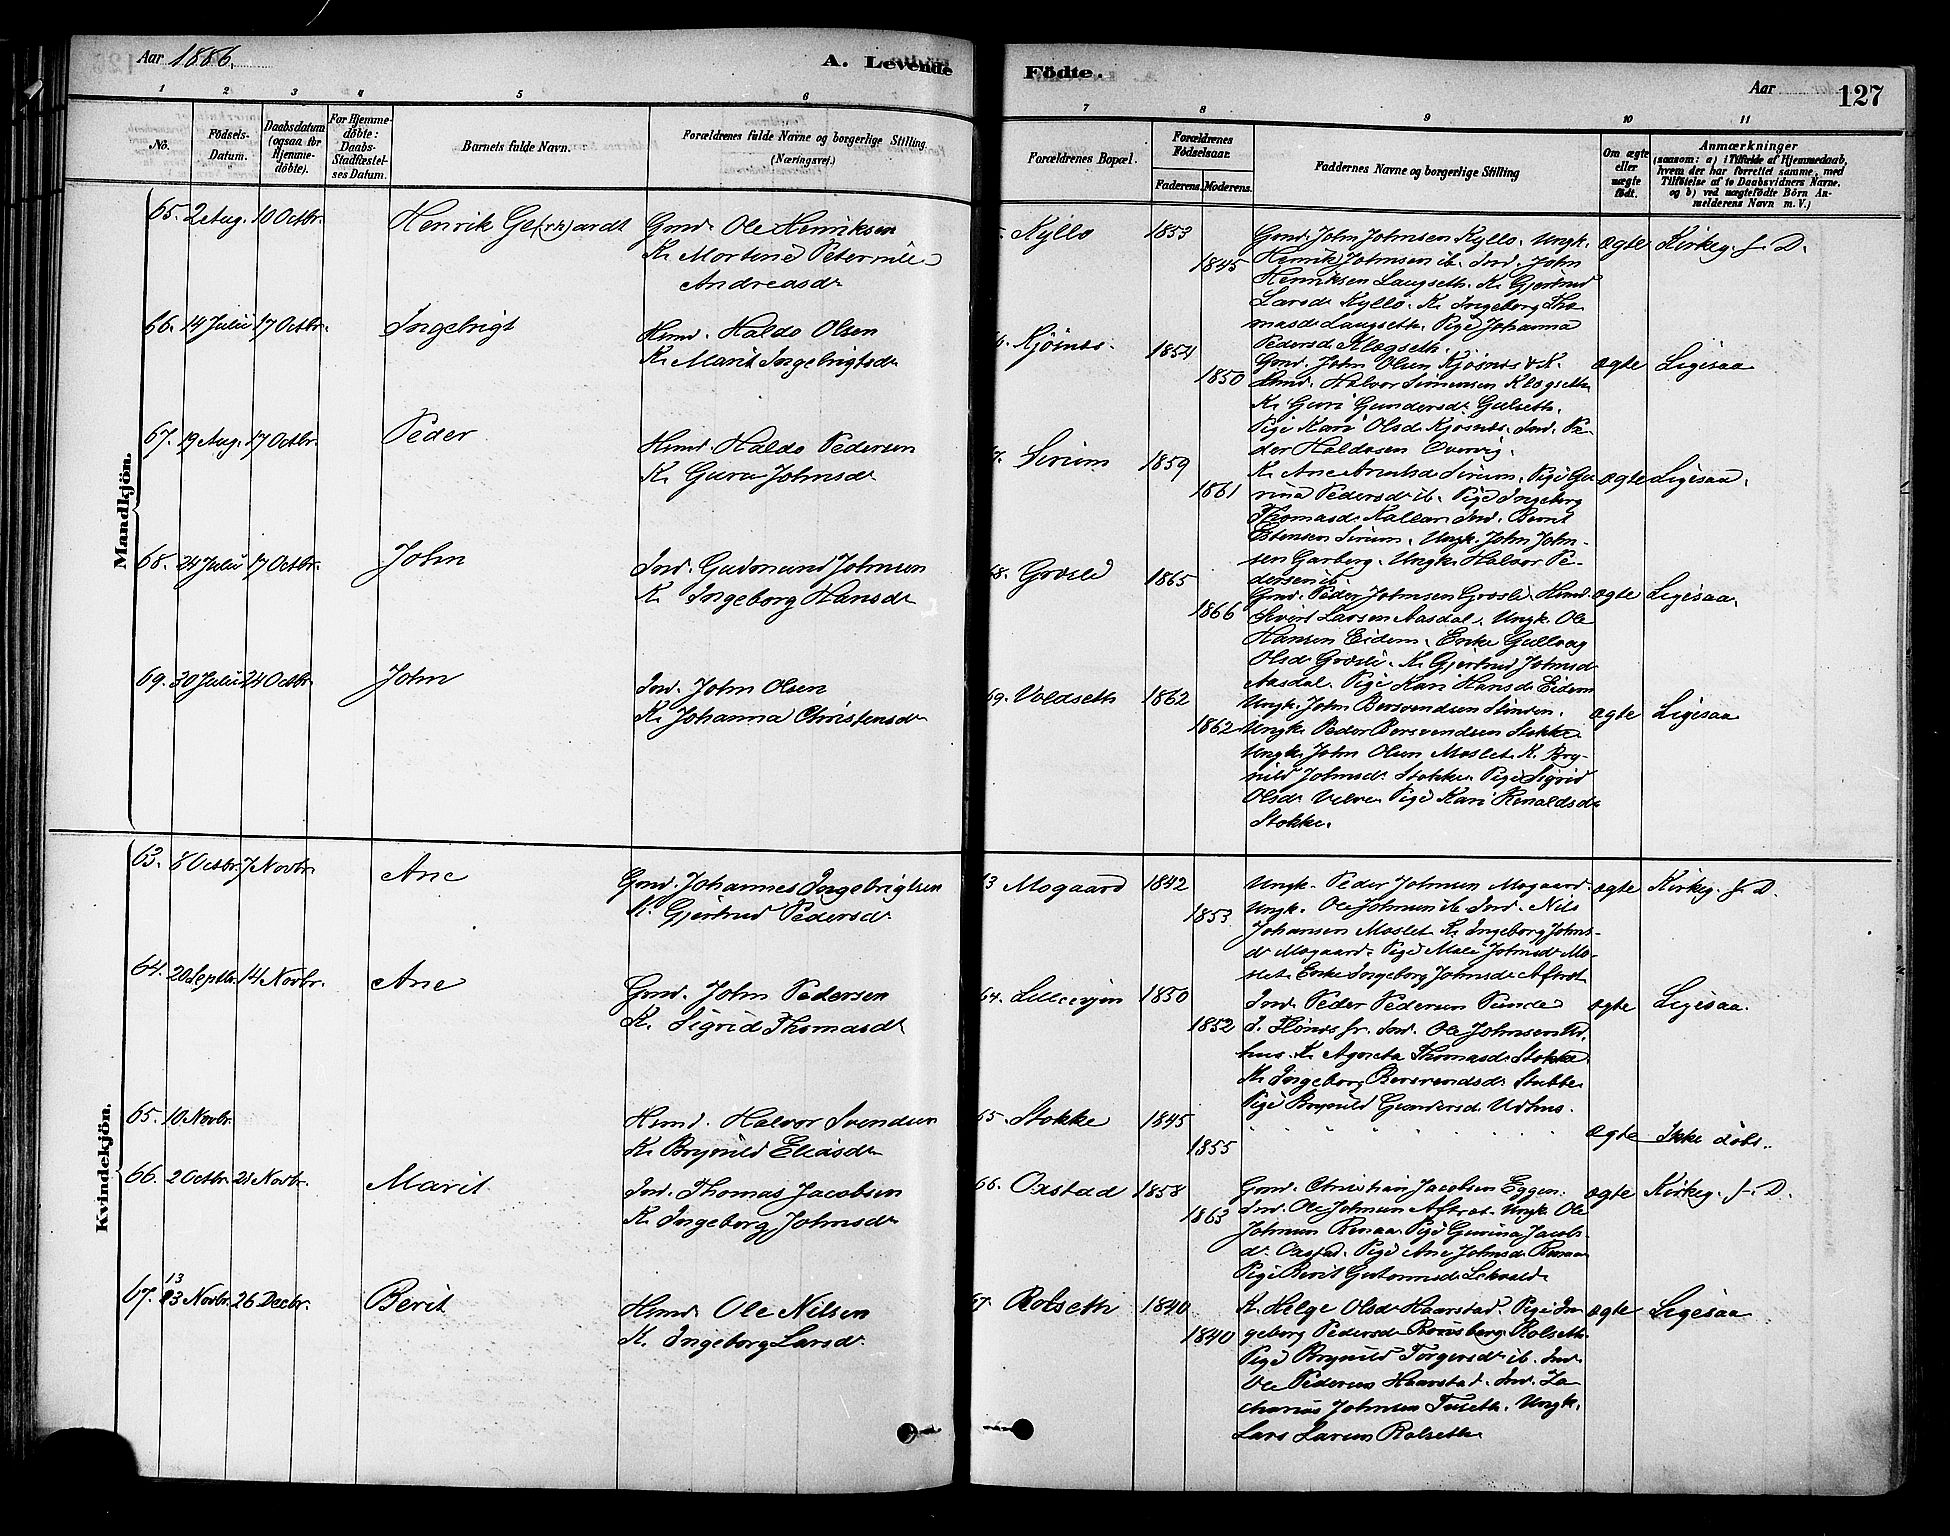 Aar 1886.
A. Levende
Födte.
Aar
127
1 2 3 4 5 6 7 8 9 10 11
No.
Födsels-Datum.
Daabsdatum (ogsaa for Hjemme-döbte).
For Hjemme-döbte: Daabs-Stadfæstel-ses Datum.
Barnets fulde Navn.
Forældrenes fulde Navne og borgerlige Stilling. (Næringsvej.)
Forældrenes Bopæl.
Forældrenes Födselsaar.
Faderens. Moderens.
Faddernes Navne og borgerlige Stilling
Om ægte eller uægte födt.
Anmærkninger
(saasom: a) i Tilfælde af Hjemmedaab, hvem der har forrettet samme, med Tilföielse af to Daabsvidners Navne. og b) ved uægtefödte Börn An-melderens Navn m. V.)
Mandkjön.
65. 2 Aug. 10 Octbr. Henrik Ge(rh)ardt Gmd. Ole Henriksen
K. Martine Peternille
Andreasdr
Kyllo 1853 1845
Gmd. John Johnsen Kyllo. Ungk.
Henrik Johnsen ib. Ind. John
Henriksen Laugseth. K. Gjertrud
Larsdr Kyllo. K. Ingeborg Tho-
masdr Laugseth. Pige Johanna
Pedersdr Klogseth.
ægte Kirkeg. f. D.
66. 14 Juli 17 Octbr. Ingebrigt Hsmd. Haldo Olsen
K. Marit Ingebrigtsdr
Kjösnes 1854 1850
Gmd. John Olsen Kjösnes & K.
Hsmd. Halvor Simensen Klogseth
K. Guri Gundersdr Gulseth.
Pige Kari Olsdr Kjösnes. Ind. Pe-
der Haldosen Overvig.
ægte Ligesaa
67. 19 Aug. 17 Octbr. Peder Hsmd. Haldo Pedersen
K. Guru Johnsdr
Sirum 1859 1861
K. Ane Arntsdr Sirum. Pige Gu-
rina Pedersdr ib. Pige Ingeborg
Thomasdr Kallar. Ind. Bernt
Estensen Sirum. Ungk. John John-
sen Garberg. Ungk. Halvor Pe-
dersen ib.
ægte Ligesaa.
68. 24 Juli 17 Octbr. John Ind. Gudmund Johnsen
K. Ingeborg Hansdr
68. Grosli 1865 1866
Gmd. Peder Johnsen Grosli. Hsmd.
Sivert Larsen Aasdal. Ungk. Ole
Hansen Eidem. Enke Gullaug
Olsdr Grosli. K. Gjertrud Johnsdr
Aasdal. Pige Kari Hansdr Eidem
ægte Ligesaa.
69. 30 Juli 24 Octbr. John Ind. John Olsen
K. Johanna Christensdr
69. Voldseth 1862 1862
Ungk. John Bersvendsen Stinden.
Ungk. Peder Bersvendsen Stokke.
Ungk. John Olsen Moslet. K. Bry-
nild Johnsdr Stokke. Pige Sigrid
Olsdr Velve. Pige Kari Renaldsdr
Stokke.
ægte Ligesaa
Kvindekjön.
63. 8 Octbr. 7 Novbr. Ane Gmd. Johannes Ingebrigtsen
K. Gjertrud Pedersdr
Mogaard 1842 1853
Ungk. Peder Johnsen Mogaard.
Ungk. Ole Johnsen ib. Ind. Nils
Johansen Moslet. K. Ingeborg Johns-
dr Mogaard. Pige Mali Johnsdr Mo-
slet. Enke Ingeborg Johnsdr Aftret
ægte Kirkeg. f. D.
64. 20 Septbr. 14 Novbr. Ane Gmd. John Pedersen
K. Sigrid Thomasdr
64. Lilleevjen 1850 1852
Ind. Peder Pedersen
Ind. Ole Johnsen Ud-
hus. K. Agneta Thomasdr Stokke.
K. Ingeborg Bersvendsdr Stubbe
Pige Brynild Gundersdr Udhus.
ægte Ligesaa.
65. 10 Novbr. Hsmd. Halvor Svendsen
K. Brynild Eliasdr
65. Stokke 1845 1855
ægte Ikke döbt.
66. 2 Octbr. 21 Novbr. Marit Ind. Thomas Jacobsen
K. Ingeborg Johnsdr
66. Oxstad 1858 1863
Gmd. Christian Jacobsen Eggen.
Ind. Ole Johnsen Aftret. Ungk. Ole
Johnsen Renaa. Pige Gurina Jacobs-
dr Oxstad. Pige Ane Johnsdr Renaa
Pige Berit Guttormsdr
ægte Kirkeg. f. D.
67. 13 Novbr. 26 Decbr. Berit Hsmd. Ole Nilsen
K. Ingeborg Larsdr
67. Rolseth 1840 1840
K. Helge Olsdr Haarstad. Pige In-
geborg Pedersdr Rönsberg Rolseth.
Pige Brynild Torgersdr ib. Ind.
Ole Pedersen Haarstad. Ind. Za-
charias Johnsen Tuseth. Ungk.
Lars Larsen Rolseth
ægte Ligesaa